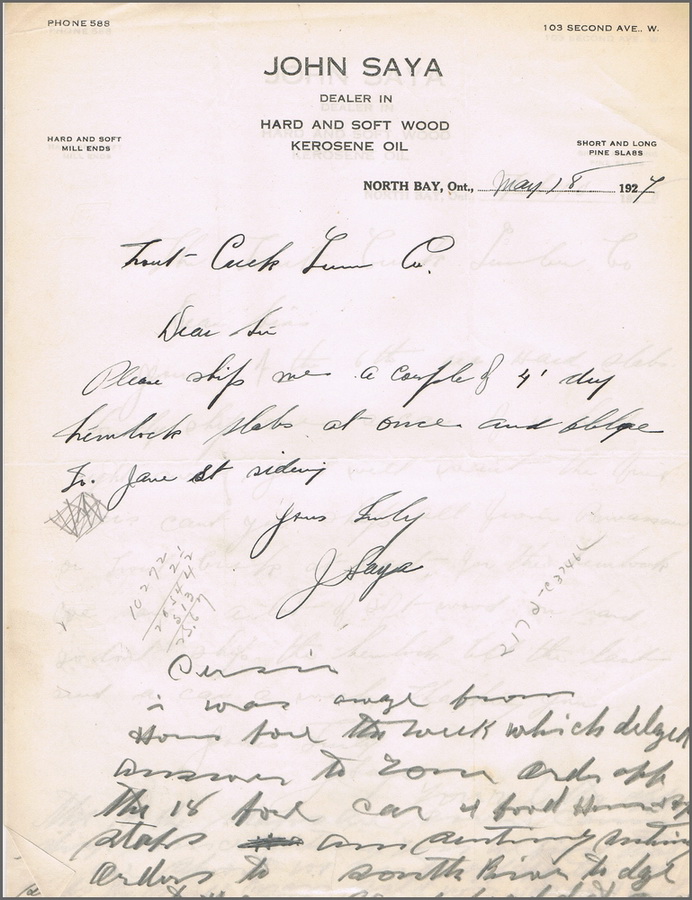 PHONE 588
103 SECOND AVE., W.
JOHN SAYA
DEALER IN
HARD AND SOFT WOOD
KEROSENE OIL
HARD AND SOFT
MILL ENDS
SHORT AND LONG
PINE SLABS
NORTH BAY, Ont., May 18 1927
Trout Creek Lum Co.
Dear Sir
Please ship me a couple of 4' dry
hemlock slabs at once and oblige
To. Jane St siding
Yours Truly
J Saya
10272
2 1/2
20544
513
25.67
2172
Dersir
i was awge from
Homs fore the week which delzed
answer to zour Order opp
the 18 fore car 4 food
slabs am
Orders to south River to dge